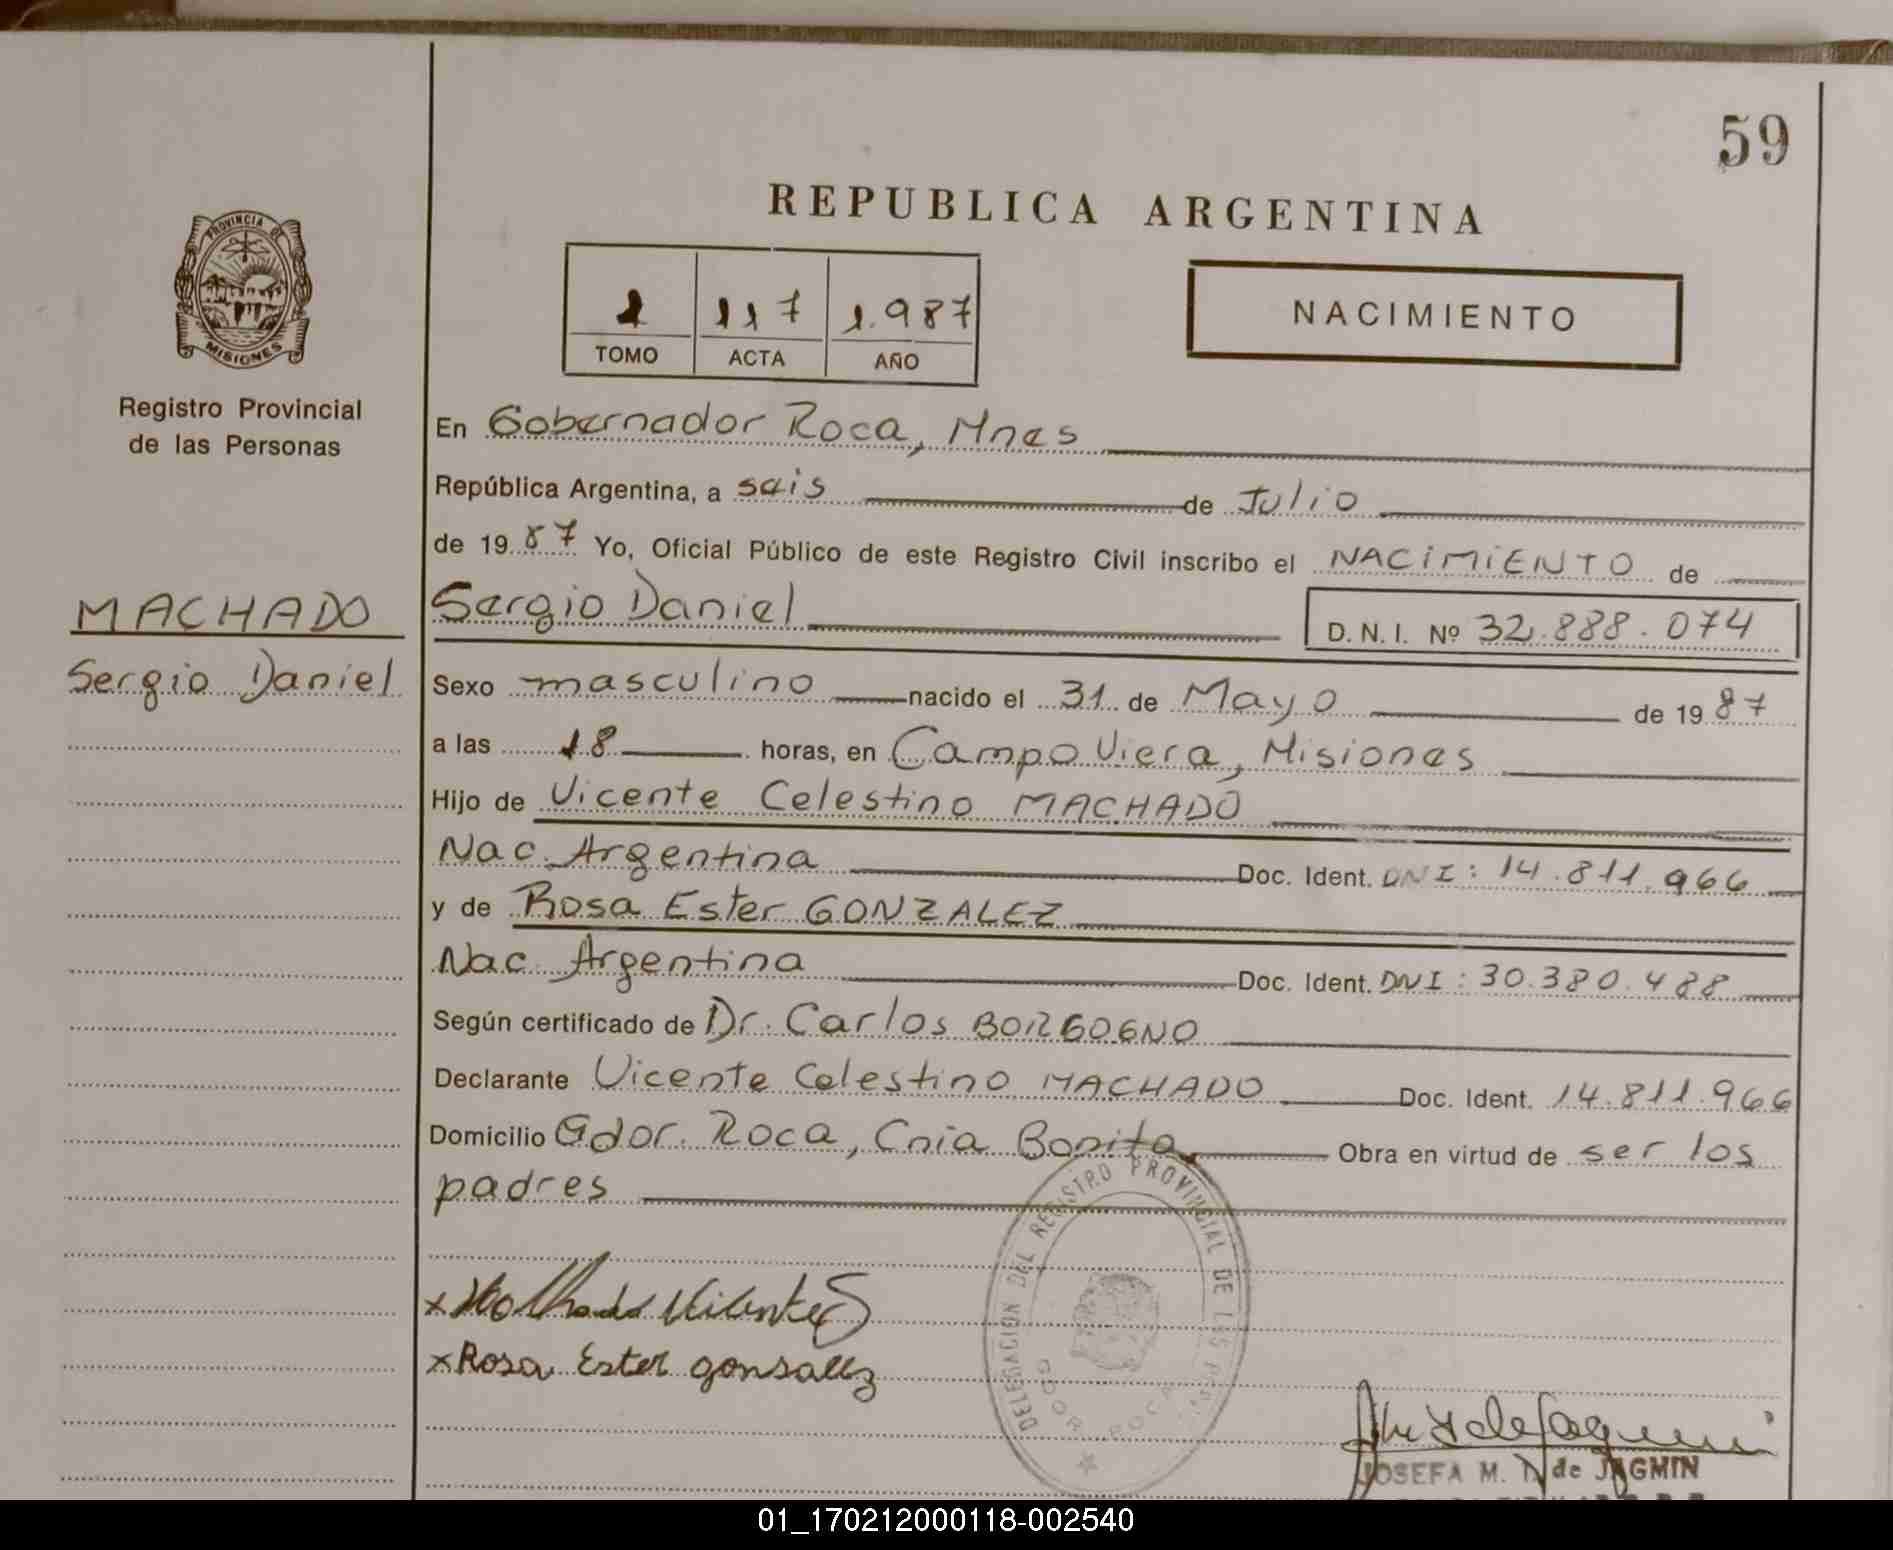 59
REPUBLICA ARGENTINA
PROVINCIA DE
MISIONES
Registro Provincial
de las Personas
1 117 1.987
TOMO ACTA AÑO
NACIMIENTO
En Gobernador Roca, Mnes
República Argentina, a seis de Julio
de 1987 Yo, Oficial Público de este Registro Civil inscribo el NACIMIENTO de
MACHADO
Sergio Daniel
Sergio Daniel D. N. I. Nº 32.888.074
Sexo masculino nacido el 31 de Mayo de 1987
a las 18 horas, en Campo Viera, Misiones
Hijo de Vicente Celestino MACHADO
Nac. Argentina Doc. Ident. DNI: 14.811.966
y de Rosa Ester GONZALEZ
Nac. Argentina Doc. Ident. DNI: 30.380.488
Según certificado de Dr. Carlos BORGOGNO
Declarante Vicente Celestino MACHADO Doc. Ident. 14.811.966
Domicilio Gdor. Roca, Cnia Bonita Obra en virtud de ser los
padres
DELEGACION DEL REGISTRO PROVINCIAL DE LAS
GDOR. ROCA
x Machado Vicente C
x Rosa Ester gonsalez
JOSEFA M. T. de JAGMIN
01_170212000118-002540